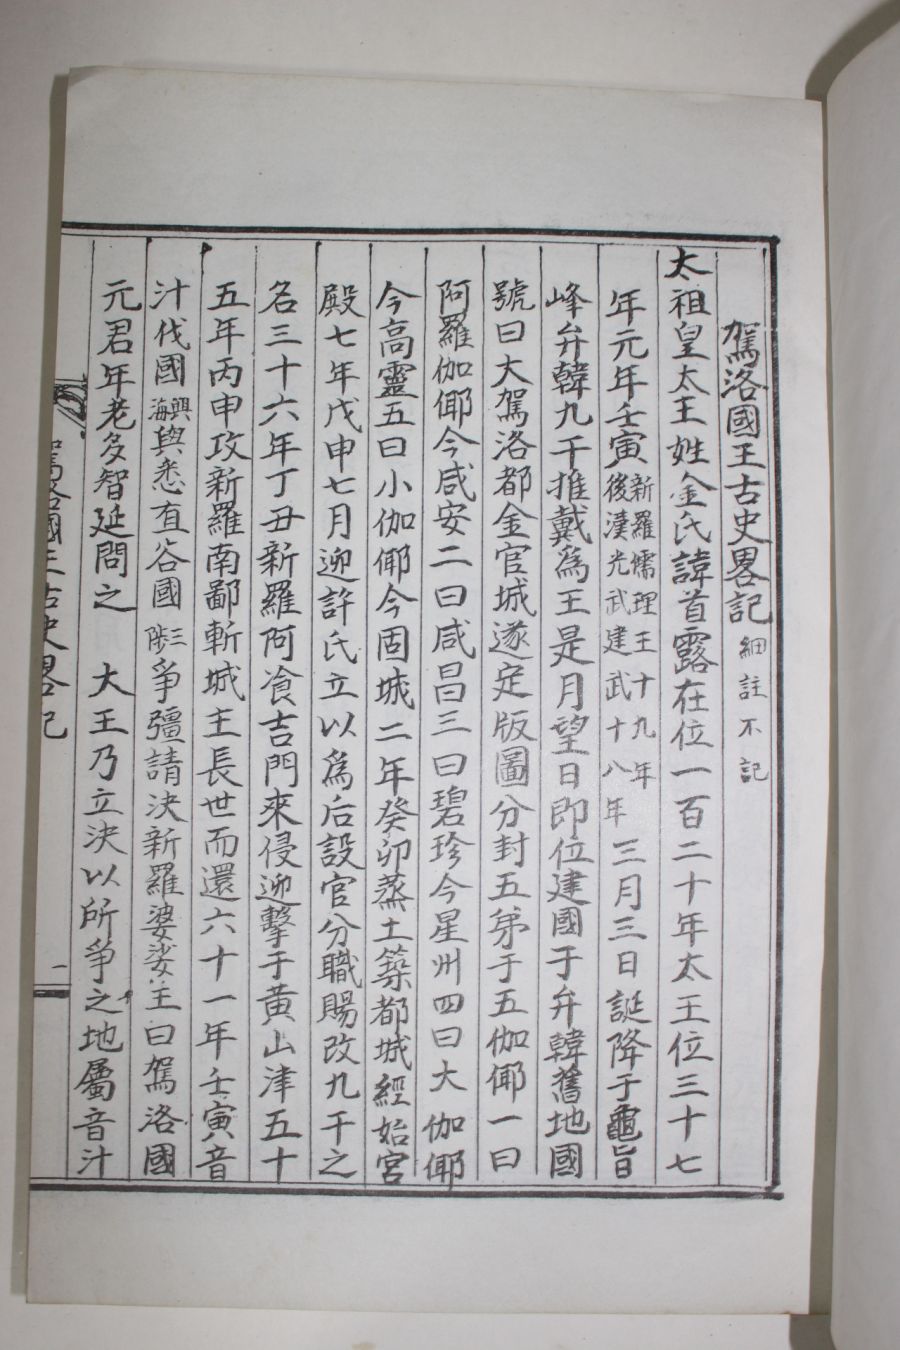 駕洛國王古史畧記 細註不記
太祖皇太王姓金氏諱首露在位一百二十年太王位三十七
年元年壬寅 新羅儒理王十九年 後漢光武建武十八年 三月三日誕降于龜旨
峰弁韓九干推戴爲王是月望日即位建國于弁韓舊地國
號曰大駕洛都金官城遂定版圖分封五弟于五伽倻一曰
阿羅伽倻今咸安二曰咸昌三曰碧珍今星州四曰大伽倻
今高靈五曰小伽倻今固城二年癸卯蒸土築都城經始宮
殿七年戊申七月迎許氏立以爲后設官分職賜改九干之
名三十六年丁丑新羅阿飡吉門來侵迎擊于黃山津五十
五年丙申攻新羅南鄙斬城主長世而還六十一年壬寅音
汁伐國 興海 與悉直谷國 三陟 爭彊請決新羅婆娑王曰駕洛國
元君年老多智延問之 大王乃立決以所爭之地屬音汁
駕洛國王古史畧記
一